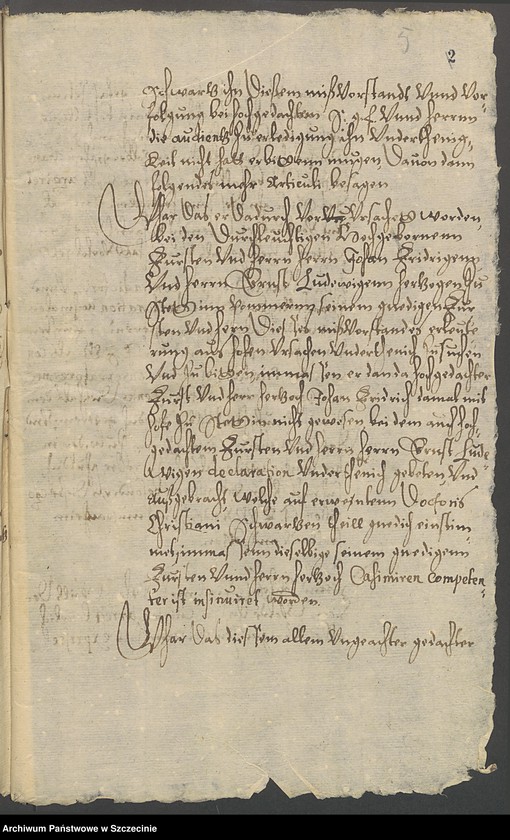 5
2
Schwartz ihn diesem mißvorstandt Vnnd Vor-
folgung bei hochgedachten F. g. Vnnd herrn
die audientz Zu erledigung ihn Vnderthenig-
keit nicht hatt erbitten mugen, dauon dann
folgender mehr Articuli besagen
War das er dadurch Vorursachet worden,
bei den Durchleuchtigen Hochgebornenn
Fursten Vnd herrn herrn Johan Fridrigenn
Vnd herrn Ernst Ludewigenn hertzogen Zu
Stettinn Pommernn seinem gnedigen Fur
sten Vnd hern dieses mißvorstandes erleute
rung aus hohen Vrsachen Vnderthenich Zusuchen
Vnd Zu bitten, inmassen er dan da hochgedachter
Furst Vnd herr hertzoch Johan Fridrich damals mit
hofe Zu Stettin nicht gewesen bei dem auch hoch-
gedachtem Fursten Vnd herrn herrn Ernst Lude-
wigen declaration Vnderthenich gebeten Vnd
ausgebracht, welche auf erwentenn Doctoris
Christiani Schwartzen theill gnedich einstim-
met, inmassenn dieselbige seinem gnedigenn
Fursten Vnnd herrn hertzoch Casimiren competen-
ter ist insinuiret worden.
War das diesem allem Vngeachtet gedachter
Archiwum Państwowe w Szczecinie